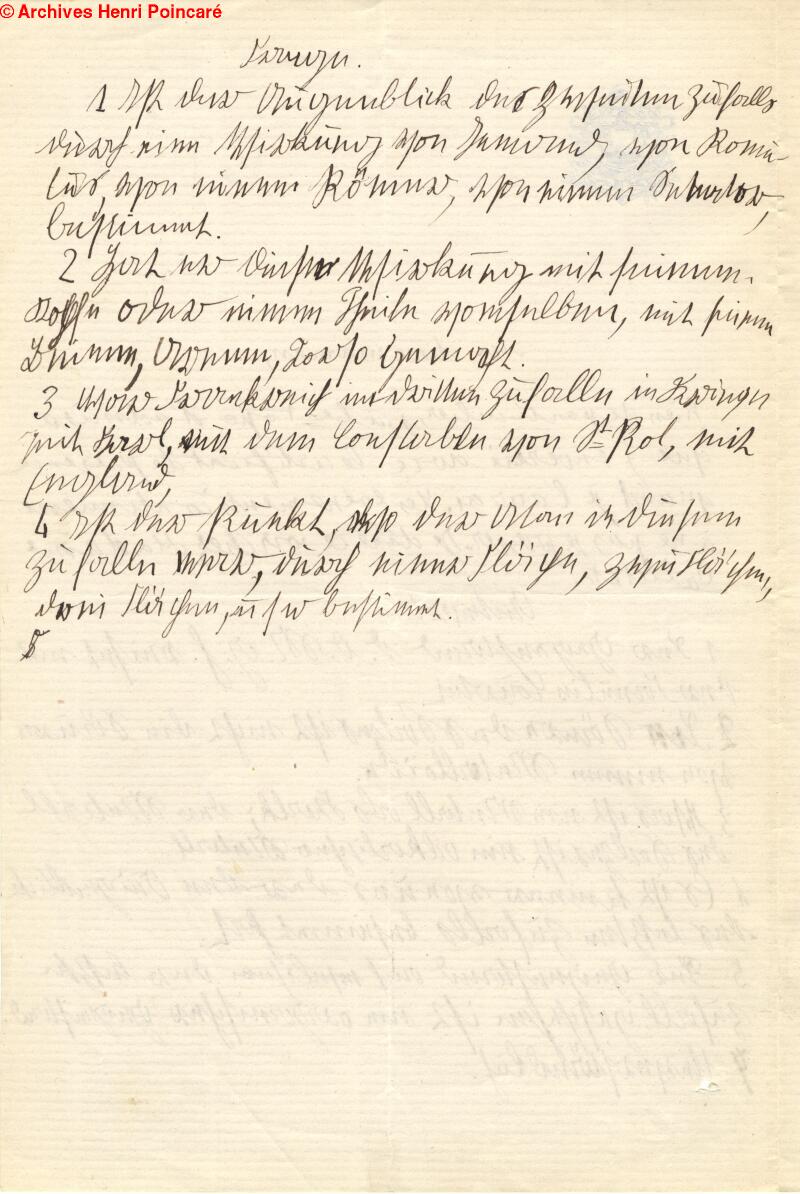 © Archives Henri Poincaré
Fragen.
1 Ist der Augenblick des zweiten Zufalls
durch eine Wirkung von Jemand, von Romu-
lus, von einem Römer, von einem
bestimmt.
2 Hat er diese Wirkung mit seinem
Kopfe oder einem Theile vomselben, mit seinen
Beinen, Armen, gemacht.
3 War Frankreich im dritten Zufalle in Kriege
mit Karl, mit dem Constabeln von St Pol, mit
England,
4 Ist der Punkt, wo der Man in diesem
Zufalle war, durch einer Fläche, zwei Flächen,
drei Flächen, u s w bestimmt.
5